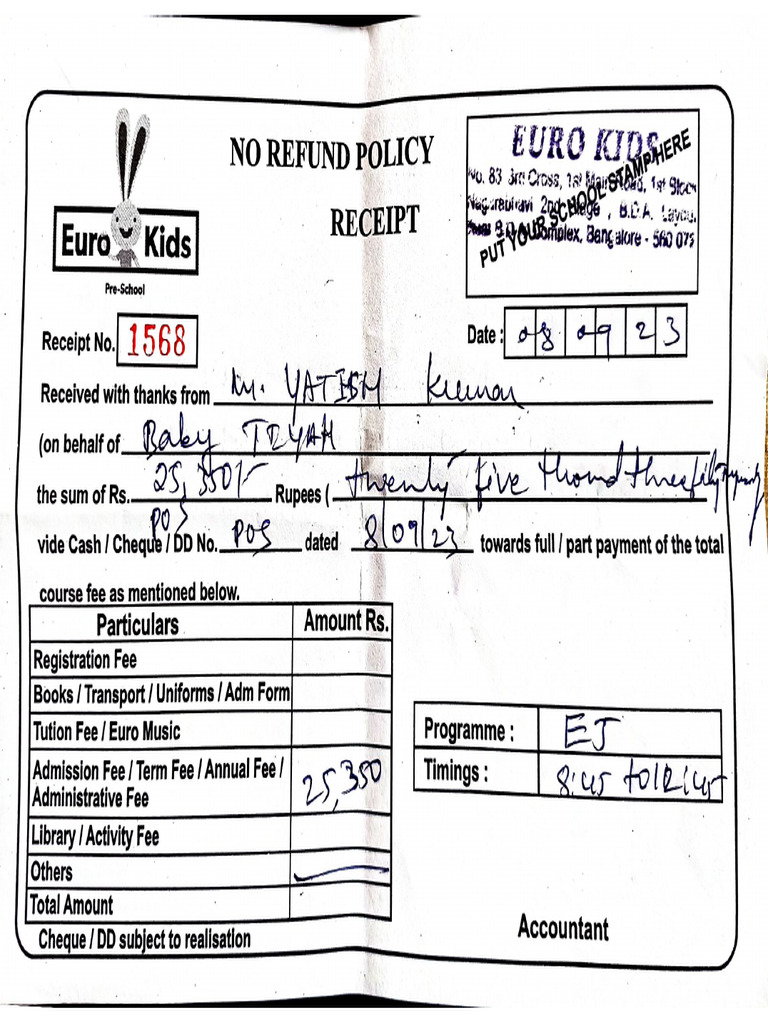 NO REFUND POLICY
RECEIPT
Euro Kids
Pre-School
EURO KIDS
No. 83 3rd Cross, 1st Main Road, 1st Block
2nd Stage, B.D.A. Layout
Complex, Bangalore - 560 072
PUT YOUR SCHOOL STAMP HERE
Receipt No. 1568
Date : 08 09 23
Received with thanks from Mr. YATISH Kumar
(on behalf of Baby TEYAH
the sum of Rs. 25,350/- Rupees ( twenty five
POS
vide Cash / Cheque / DD No. POS dated 8/09/23 towards full / part payment of the total
course fee as mentioned below.
Particulars Amount Rs.
Registration Fee
Books / Transport / Uniforms / Adm Form
Tution Fee / Euro Music
Admission Fee / Term Fee / Annual Fee /
Administrative Fee 25,350
Library / Activity Fee
Others
Total Amount
Cheque / DD subject to realisation
Programme : EJ
Timings : 8:45 to 12:45
Accountant